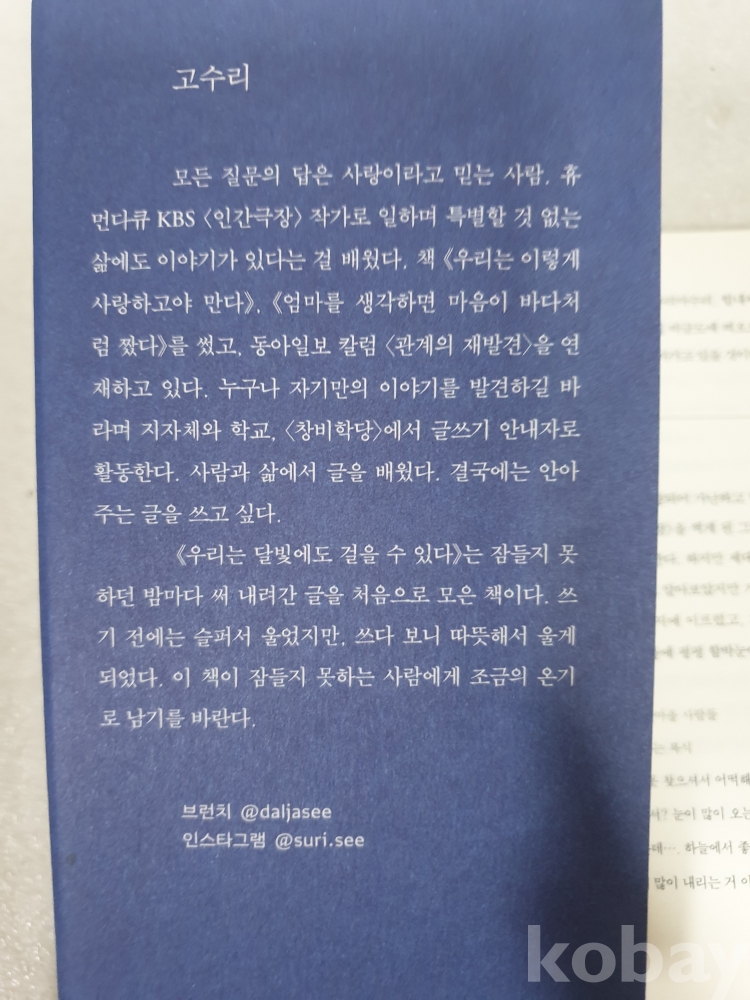 고수리
모든 질문의 답은 사랑이라고 믿는 사람. 휴
먼다큐 KBS 〈인간극장〉 작가로 일하며 특별할 것 없는
삶에도 이야기가 있다는 걸 배웠다. 책 《우리는 이렇게
사랑하고야 만다》, 《엄마를 생각하면 마음이 바다처
럼 짰다》를 썼고, 동아일보 칼럼 〈관계의 재발견〉을 연
재하고 있다. 누구나 자기만의 이야기를 발견하길 바
라며 지자체와 학교, 〈창비학당〉에서 글쓰기 안내자로
활동한다. 사람과 삶에서 글을 배웠다. 결국에는 안아
주는 글을 쓰고 싶다.
《우리는 달빛에도 걸을 수 있다》는 잠들지 못
하던 밤마다 써 내려간 글을 처음으로 모은 책이다. 쓰
기 전에는 슬퍼서 울었지만, 쓰다 보니 따뜻해서 울게
되었다. 이 책이 잠들지 못하는 사람에게 조금의 온기
로 남기를 바란다.
브런치 @daljasee
인스타그램 @suri.see
찾으셔서 어떡해
눈이 많이 오는
하늘에서 좋
많이 내리는 거 아
kobay